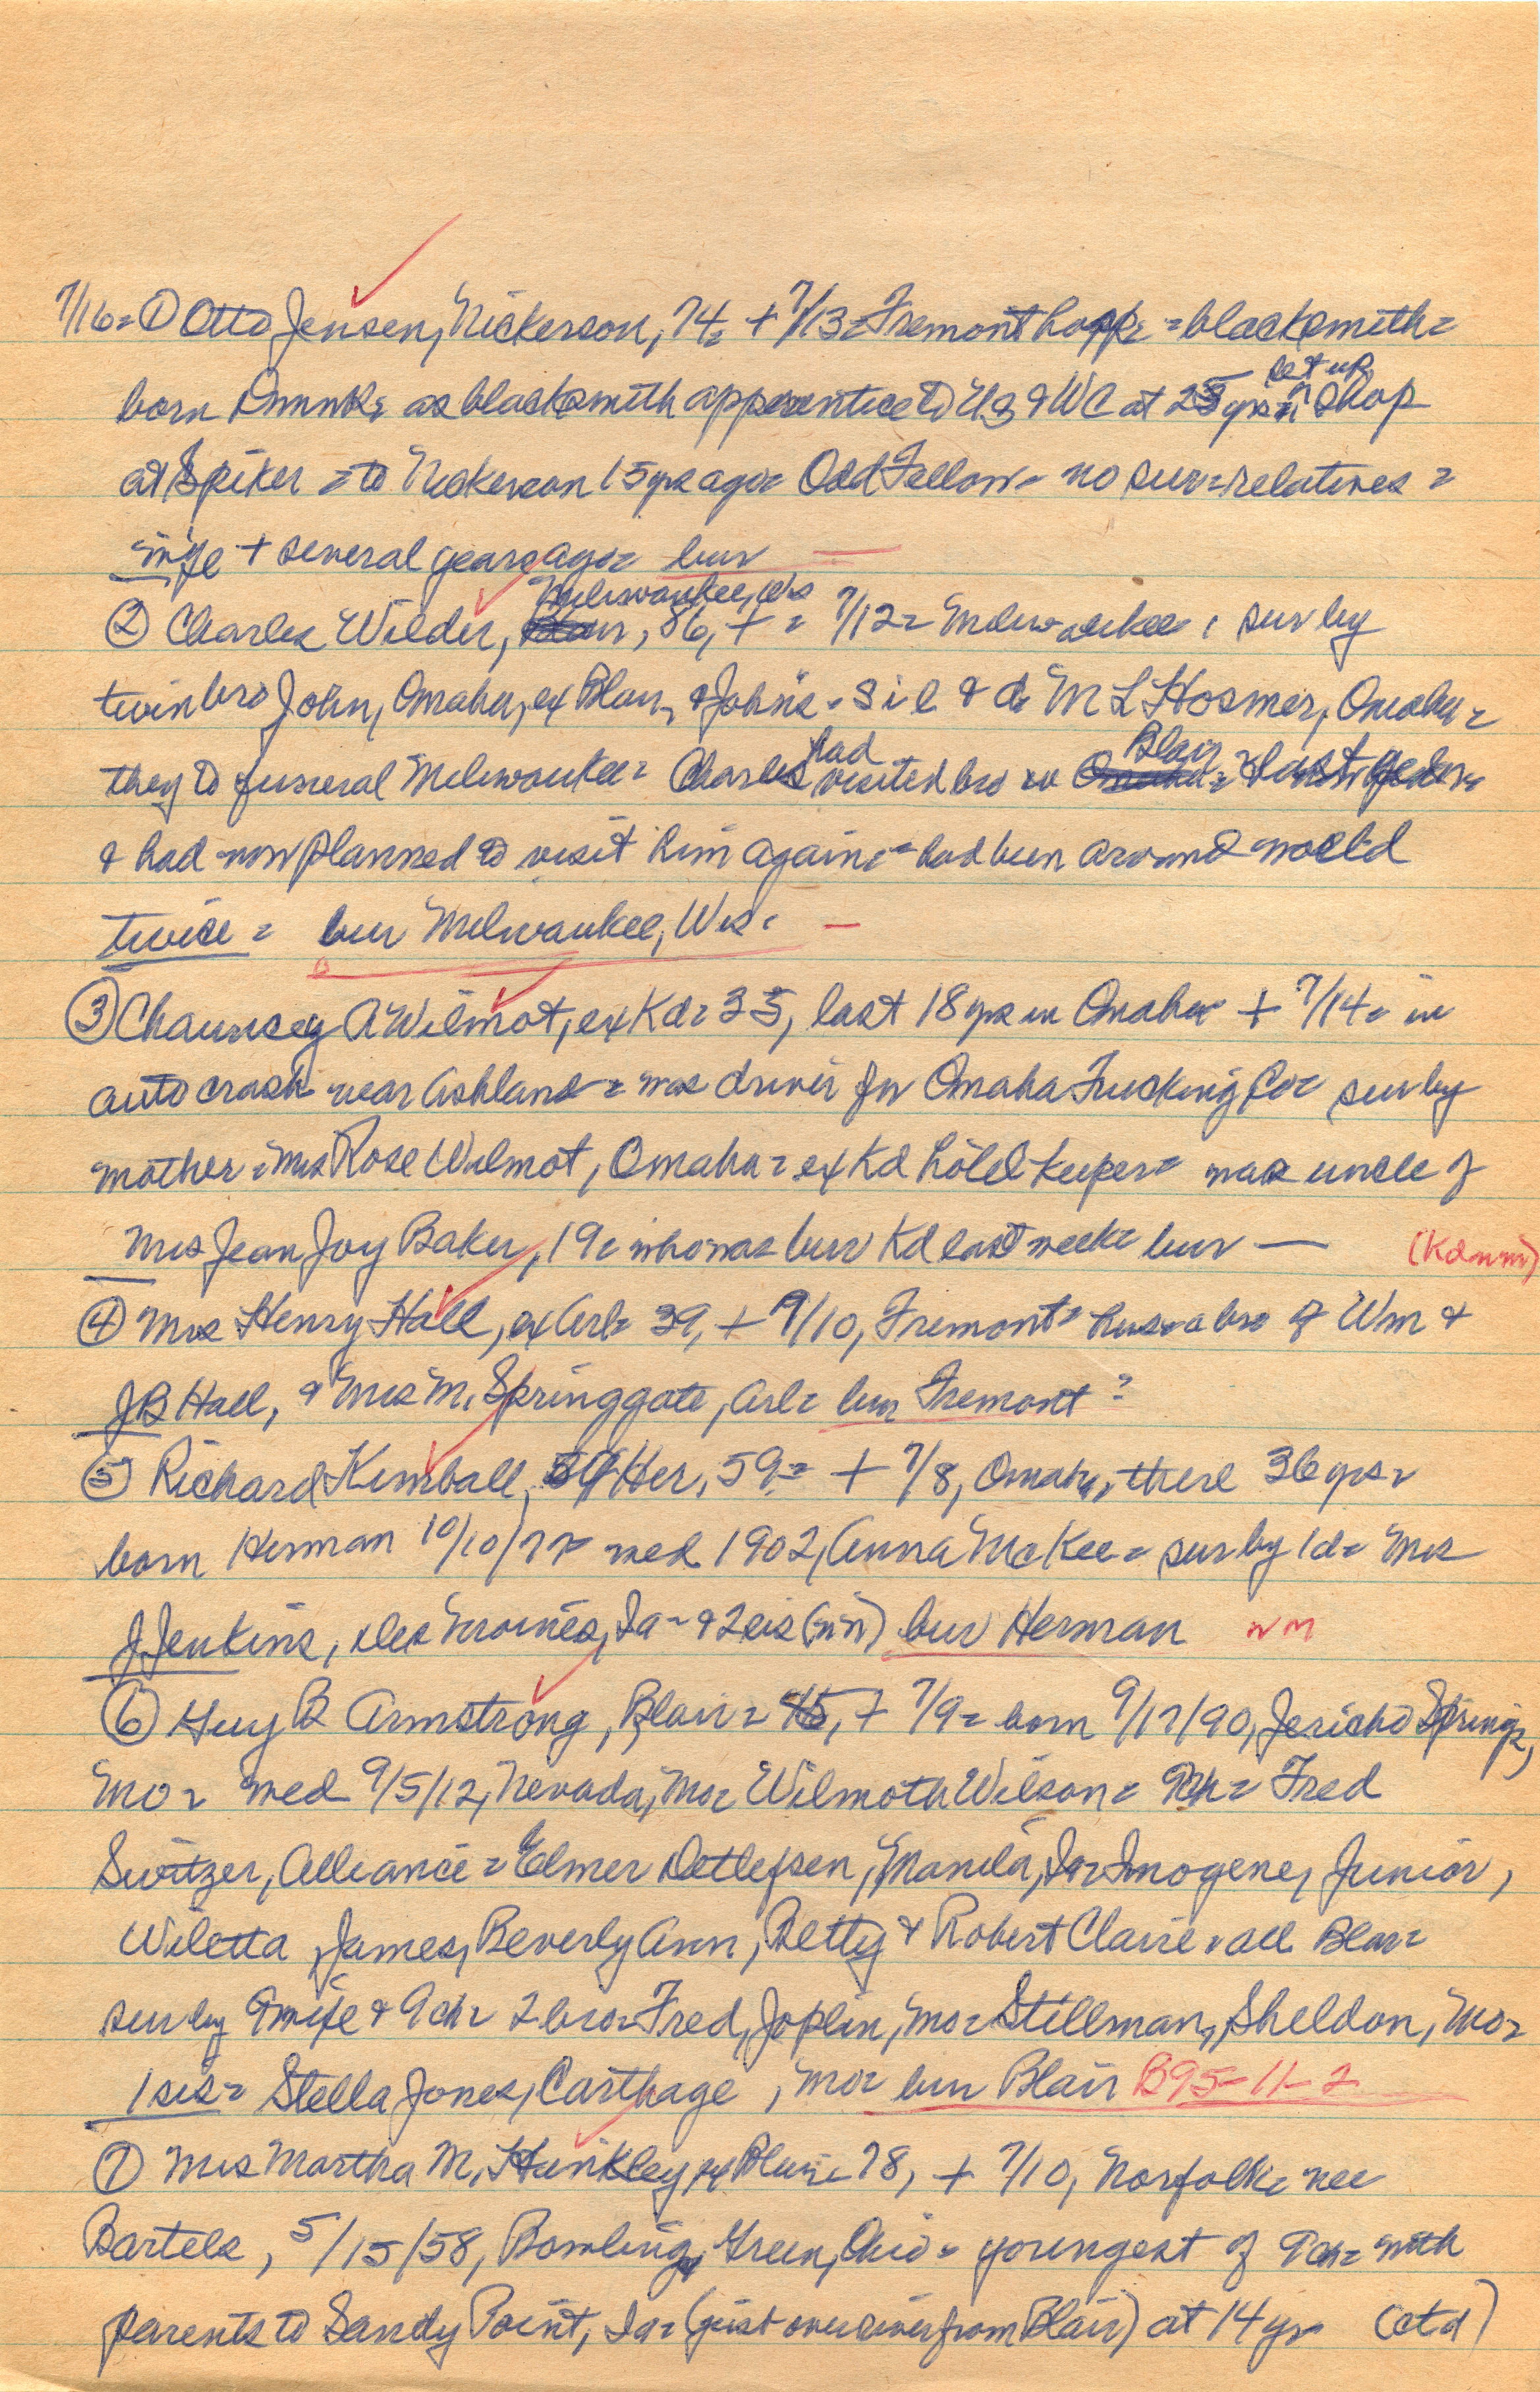 7/16= ① Otto Jensen, Nickerson, 74= + 7/13= Fremont hosp= =blacksmith=
born Dnmrk= as blacksmith apprentice to US & WC at 25 yrs= set up shop
at Spiker = to Nickerson 15 yrs ago= Odd Fellow= no sur= relatives =
wife + several years ago= bur —
② Charles Wilder, Milwaukee, Wis, 86, + = 7/12= Milwaukee, sur by
twin bro John, Omaha, ex Blair, & John's= s i l & d= M L Hosmer, Omaha=
they to funeral Milwaukee= Charles had visited bro in Blair=
& had now planned to visit him again= had been around world
twice = bur Milwaukee, Wis= —
③ Chauncey A Wilmot, ex Kd= 35, last 18 yrs in Omaha + 7/14= in
auto crash near Ashland = was driver for Omaha Trucking Co= sur by
mother= Mrs Rose Wilmot, Omaha= ex Kd hotel keeper= was uncle of
Mrs Jean Joy Baker, 19= who was bur Kd last week= bur — (Kd nm)
④ Mrs Henry Hall, ex Arl= 39, + 7/10, Fremont= hus= a bro of Wm &
JB Hall, & Mrs M. Springgate, Arl= bur Fremont ?
⑤ Richard Kimball, ex Her, 59= + 7/8, Omaha, there 36 yrs=
born Herman 10/10/77= wed 1902, Anna McKee= sur by 1 d= Mrs
J Jenkins, Des Moines, Ia= & 2 sis (nn) bur Herman nm
⑥ Guy B Armstrong, Blair= 45, + 7/9= born 9/17/90, Jericho Springs,
Mo= wed 9/5/12, Nevada, Mo= Wilmoth Wilson= 9 ch= Fred
Switzer, Alliance= Elmer Detlefsen, Manila, Ia= Imogene, Junior,
Wiletta, James, Beverly Ann, Betty & Robert Claire, all Blair=
sur by wife & 9 ch= 2 bro= Fred, Joplin, Mo= Stillman, Sheldon, Mo=
1 sis= Stella Jones, Carthage, Mo= bur Blair B95-11-2
⑦ Mrs Martha M. Hunkley, ex Blair= 78, + 7/10, Norfolk= nee
Bartels, 5/15/58, Bowling Green, Ohio= youngest of 9 ch= with
parents to Sandy Point, Ia= (just over river from Blair) at 14 yr (ctd)